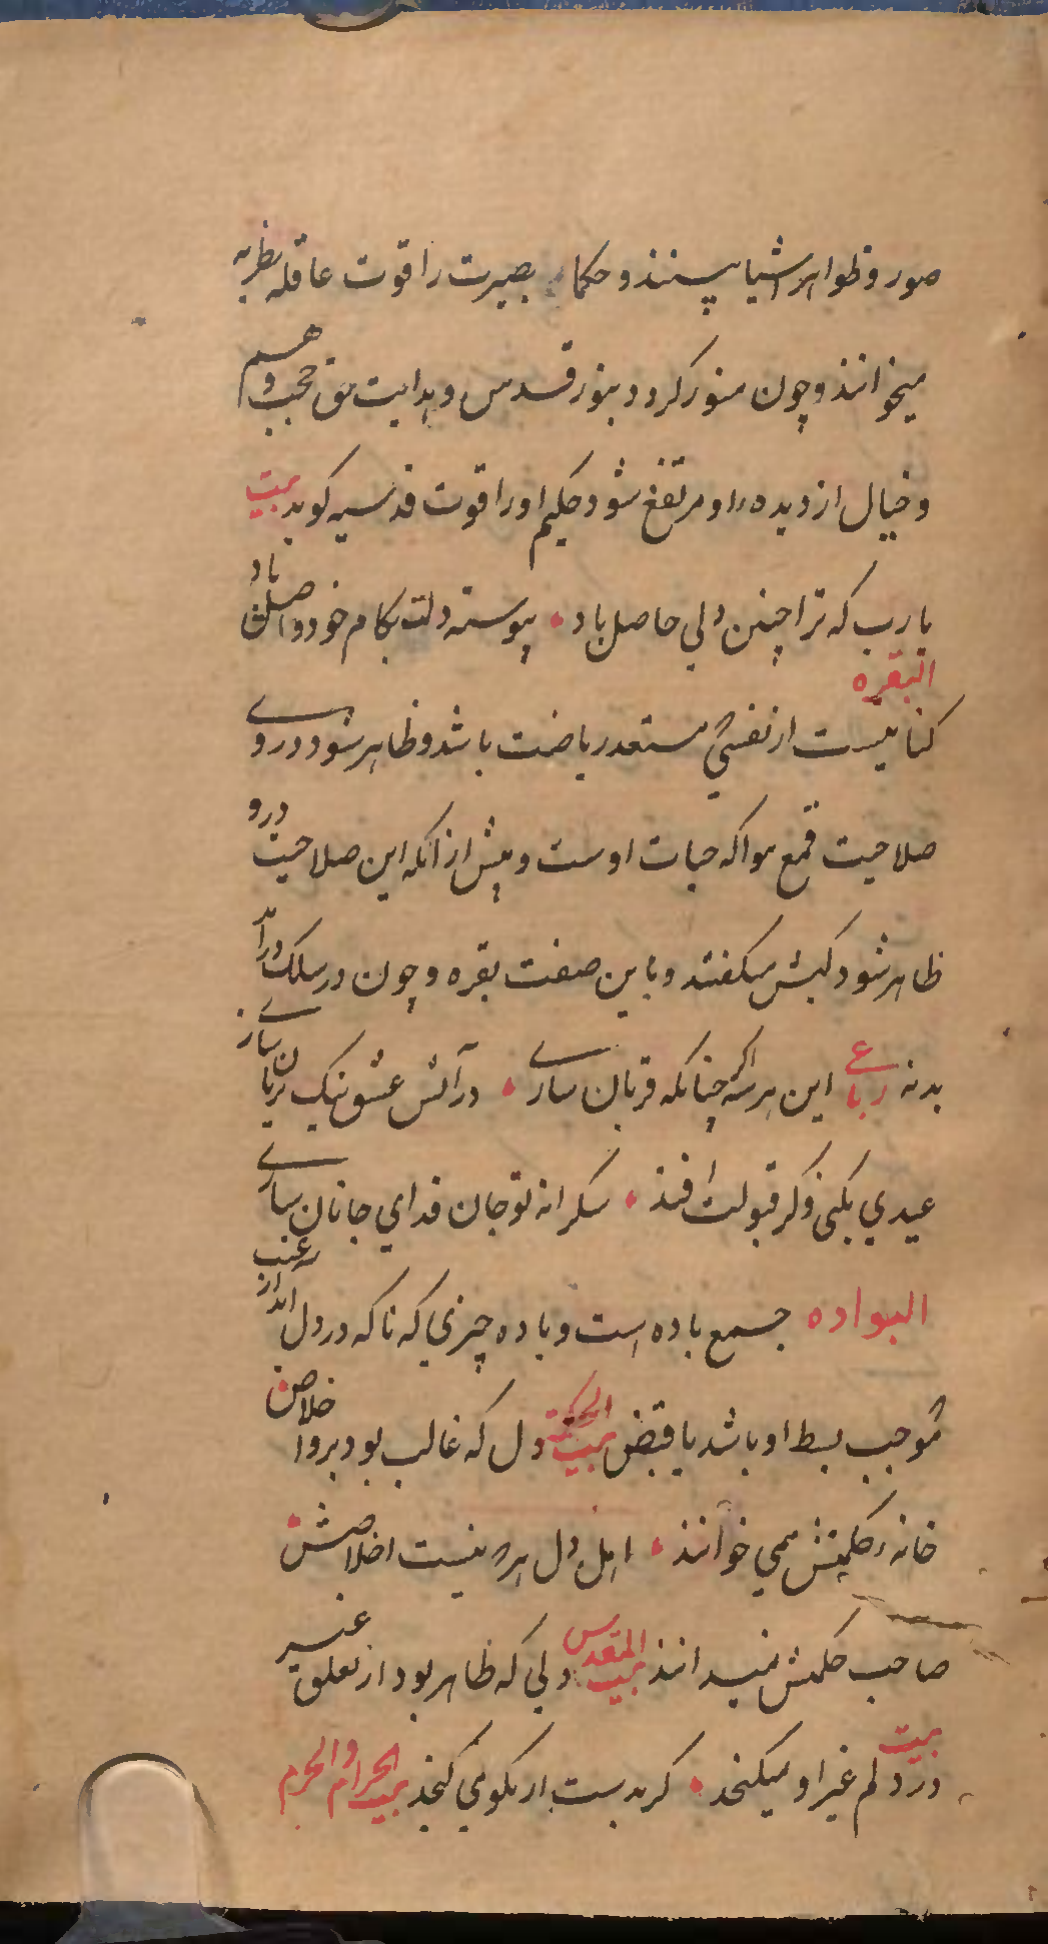 صور و ظواهر اشیا بیند و حکما بصیرت را قوت عاقله نظریه
میخوانند و چون منور کردد بنور قدس و هدایت حق حجب وهم
و خیال از دیده او مرتفع شود حکیم اورا قوت قدسیه کوید بیت
یارب که ترا چنین دلی حاصل باد پیوسته دلت بکام خود واصل باد
البقره
کنایتست از نفسی که مستعد ریاضت باشد و ظاهر شود در وی
صلاحیت قمع هوا که حیات اوست و پیش از انکه این صلاحیت درو
ظاهر شود کبش میکفتند و باین صفت بقره و چون در سلوک در آید
بدنه رباعی این هر سه اکر چنانکه قربان سازی در آتش عشق نیک بریان سازی
عیدی بکنی و کر قبولت افتد شکرانه تو جان فدای جانان سازی
البواده جمع باده است و باده چیزی که ناکه در دل آید از غیب
موجب بسط او باشد یا قبض بیت الحکمة دل که غالب بود برو اخلاص
خانه حکمتش می خوانند اهل دل هر که نیست اخلاصش
صاحب حکمتش نمیدانند بیت المقدس دلی که طاهر بود از تعلق غیر
بیت
در دلم غیر او نمیکنجد کر بدست ار نکو می کنجد بیت الحرام والحرم